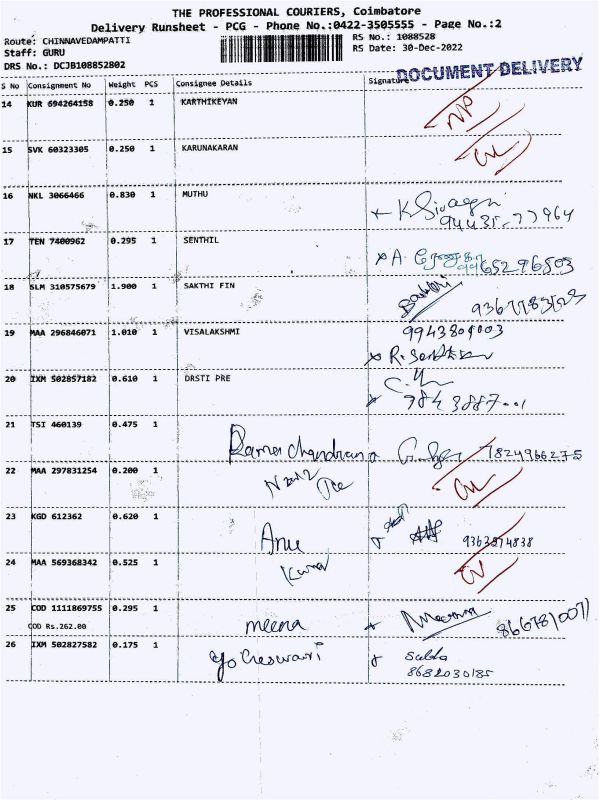 THE PROFESSIONAL COURIERS, Coimbatore
Delivery Runsheet - PCG - Phone No.:0422-3505555 - Page No.:2
Route: CHINNAVEDAMPATTI
RS No.: 1088528
Staff: GURU
RS Date: 30-Dec-2022
DRS No.: DCJB108852802
DOCUMENT DELIVERY
S No Consignment No Weight PCS Consignee Details Signature
14 KUR 694264158 0.250 1 KARTHIKEYAN
15 SVK 60323305 0.250 1 KARUNAKARAN
16 NKL 3066466 0.830 1 MUTHU
17 TEN 7400962 0.295 1 SENTHIL
9965296503
18 SLM 310575679 1.900 1 SAKTHI FIN
19 MAA 296846071 1.010 1 VISALAKSHMI
9943809003
20 IXM 502857182 0.610 1 DRSTI PRE
21 TSI 460139 0.475 1
Ramachandran 7824966275
22 MAA 297831254 0.200 1
23 KGD 612362 0.620 1
Anu 9363274838
24 MAA 569368342 0.525 1
Kumar
25 COD 1111869755 0.295 1
COD Rs.262.00 meena Meena
26 IXM 502827582 0.175 1
Yogeswari Subha
8682030185